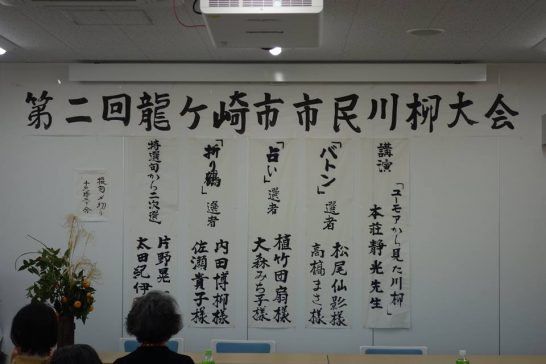 第二回龍ケ崎市市民川柳大会
講演
「ユーモアから見た川柳」
本荘静光先生
「バトン」選者
松尾仙影様
高橋まさ様
「占い」選者
植竹団扇様
大森みち子様
「折り鶴」選者
内田博柳様
佐瀬貴子様
特選句から二次選
片野晃
太田紀伊
投句〆切り